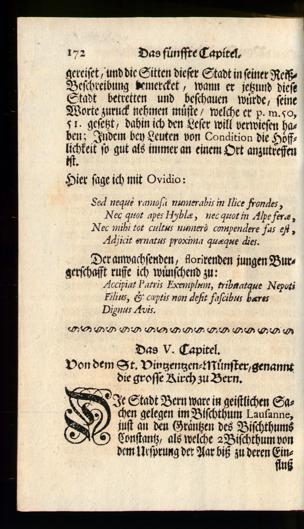 172 Das fünffte Capitel.
gereiset, und die Sitten dieser Stadt in seiner Reiß-
Beschreibung bemercket, wann er jetzund diese
Stadt betretten und beschauen würde, seine
Worte zuruck nehmen müste, welche er p. m. 50,
51. gesetzt, dahin ich den Leser will verwiesen ha-
ben; Indem bey Leuten von Condition die Höff-
lichkeit so gut als immer an einem Ort anzutreffen
ist.
Hier sage ich mit Ovidio:
Sed neque ramosa numerabis in Ilice frondes,
Nec quot apes Hyblæ, nec quot in Alpe feræ,
Nec mihi tot cultus numerò compendere fas est,
Adjicit ornatus proxima quæque dies.
Der anwachsenden, florirenden jungen Bur-
gerschafft ruffe ich wünschend zu:
Accipiat Patris Exemplum, tribuatque Nepoti
Filius, & captis non desit fascibus hæres
Dignus Avis.
Das V. Capitel.
Von dem St. Vintzentzen-Münster, genannt
die grosse Kirch zu Bern.
DIe Stadt Bern ware in geistlichen Sa-
chen gelegen im Bischthum Lausanne,
just an den Gräntzen des Bischthums
Constantz, als welche 2 Bischthum von
dem Ursprung der Aar biß zu deren Ein-
fluß